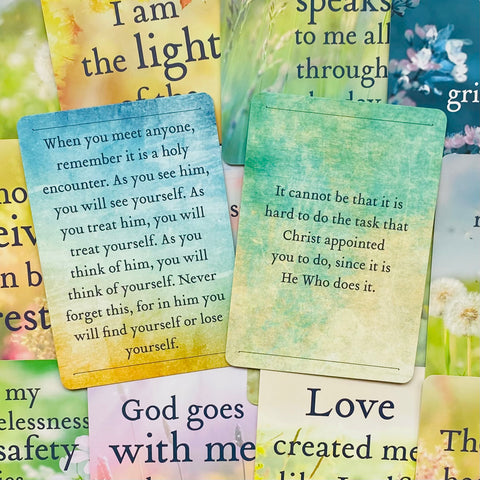 I am
the light
of the
speaks
to me all
through
the day
gri
When you meet anyone,
remember it is a holy
encounter. As you see him,
you will see yourself. As
you treat him, you will
treat yourself. As you
think of him, you will
think of yourself. Never
forget this, for in him you
will find yourself or lose
yourself.
It cannot be that it is
hard to do the task that
Christ appointed
you to do, since it is
He Who does it.
no
eiv
n b
rest
my
elessness
safety
God goes
with me
Love
created me
like
The